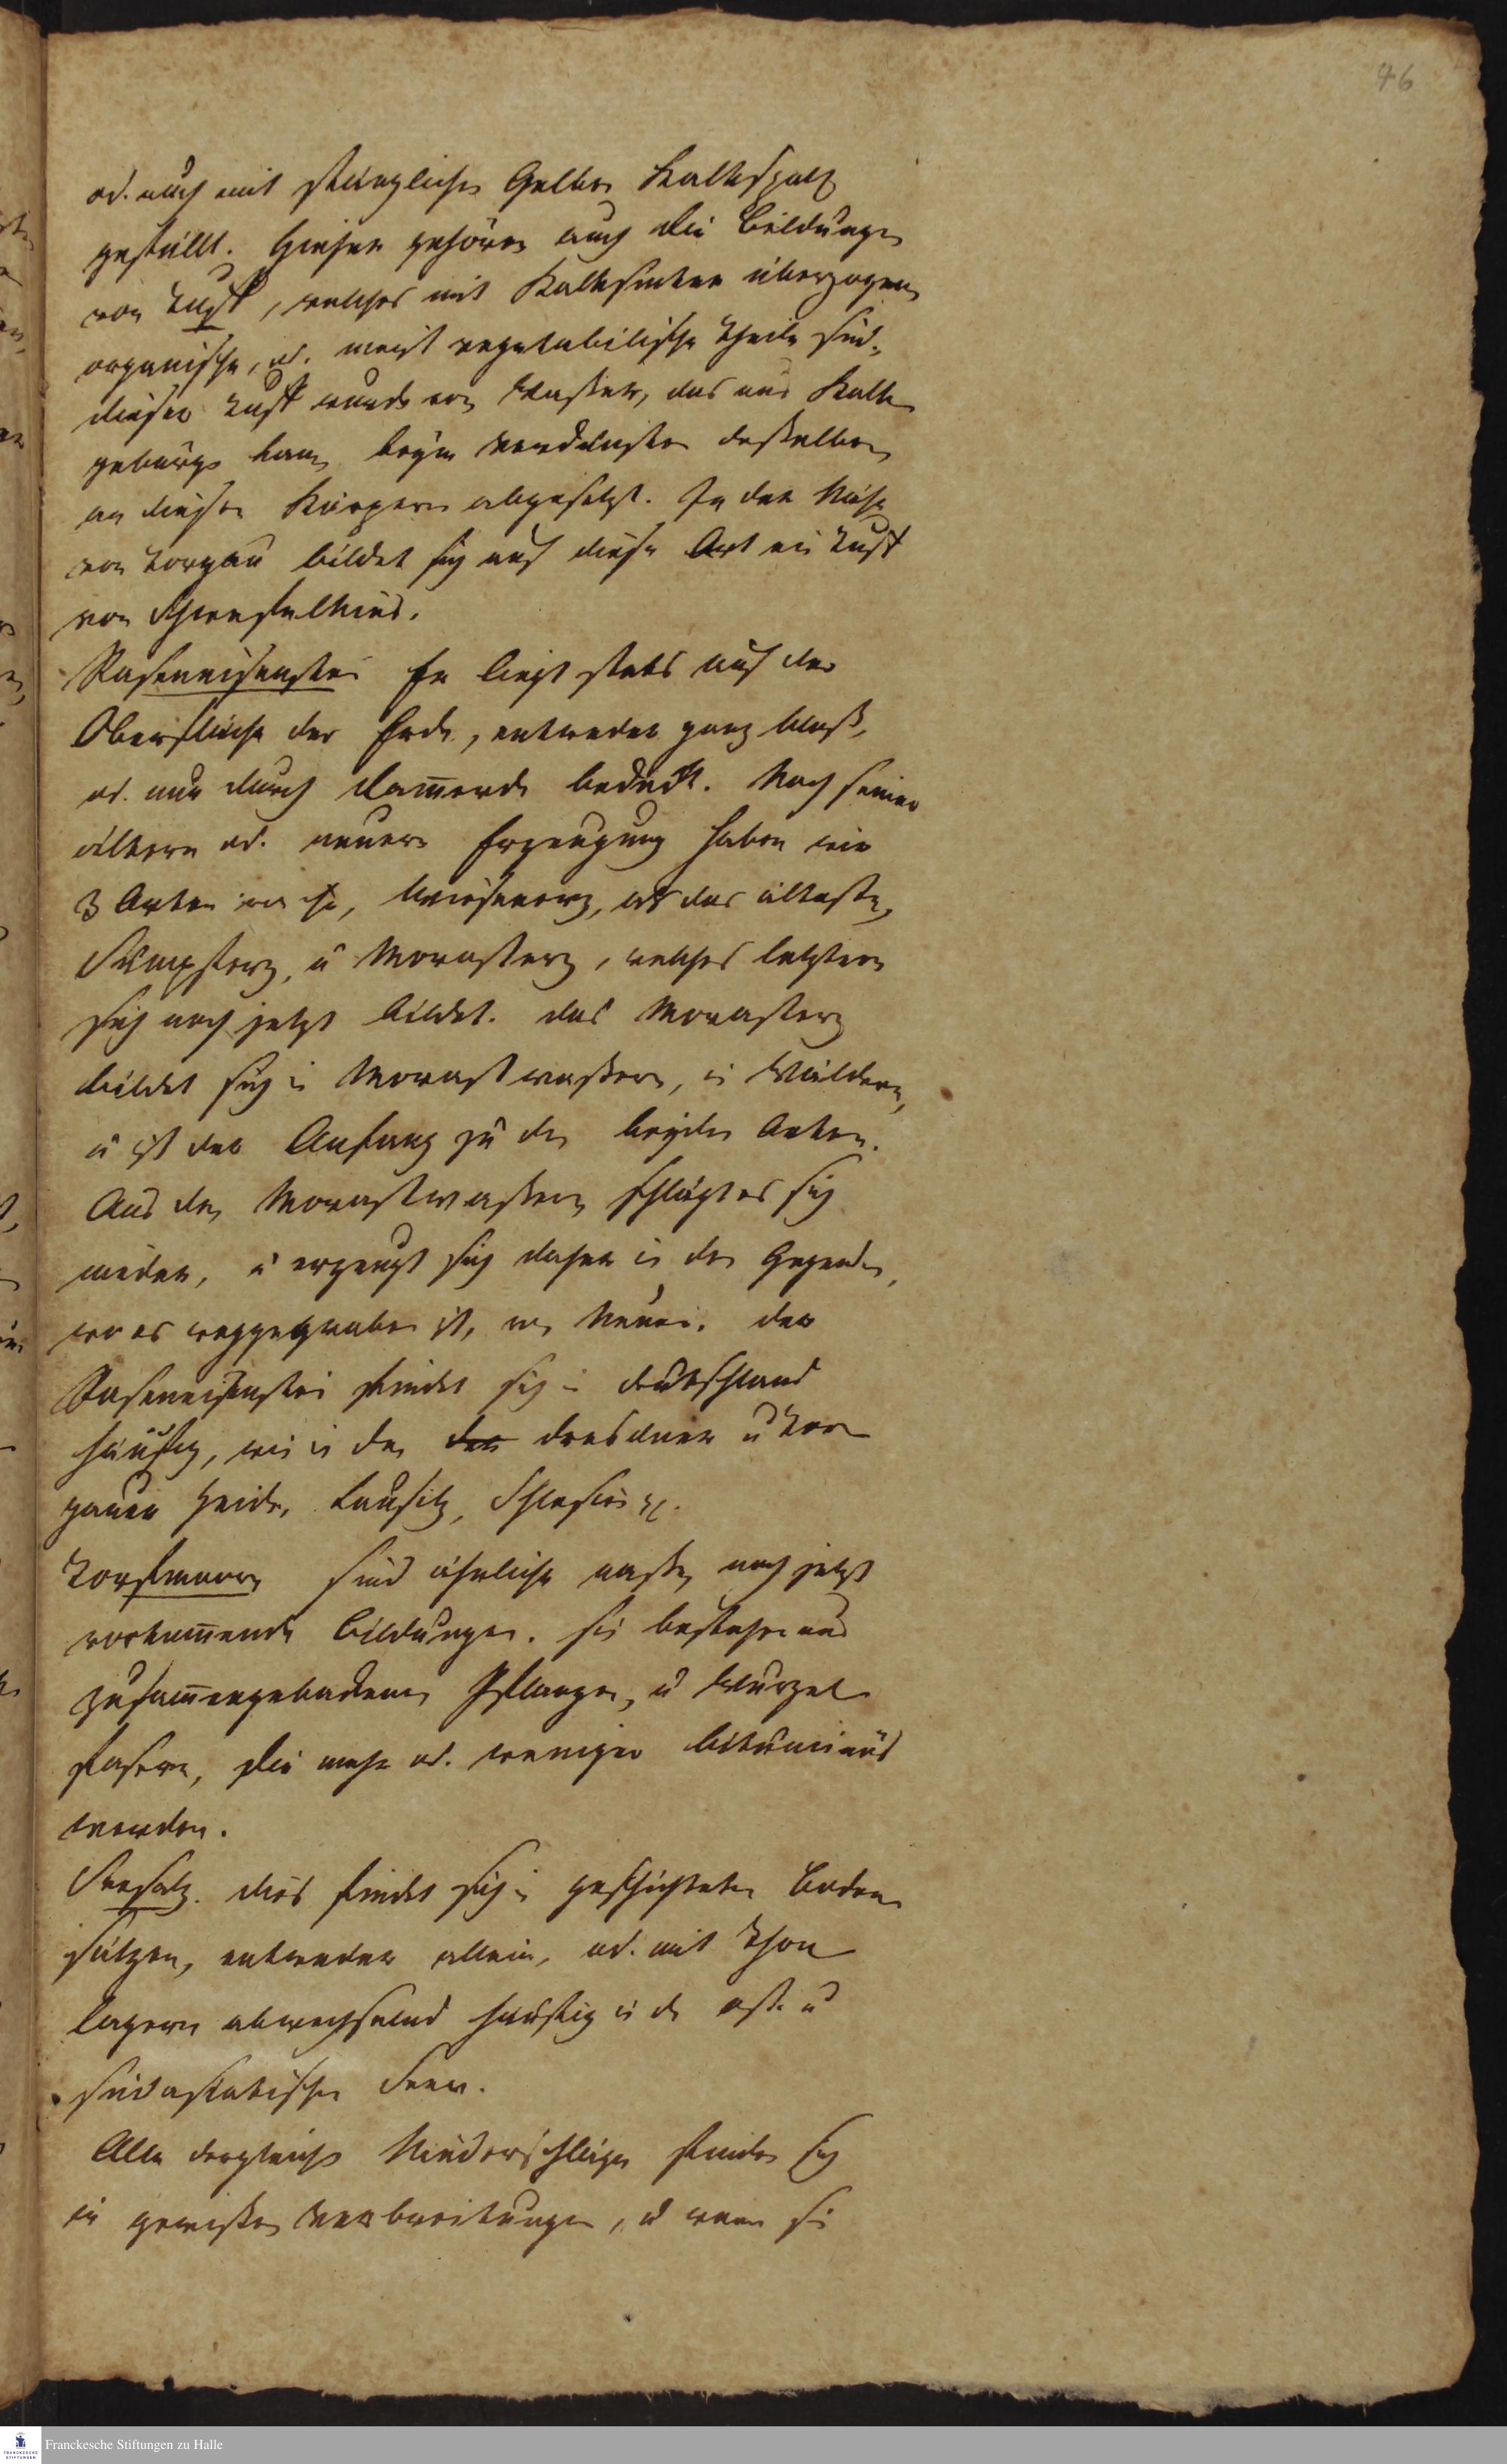 46
od. auch mit stänglichen Gelben Kalkspath
gefüllt. Hieher gehören auch die Bildungen
von Tuff, welches mit Kalksinter überzogene
organische, od. meist vegetabilische Theile sind.
dieser Tuff wurde vom Wasser, das aus Kalk
gebürge kam, beym Verdunsten desselben
an diesen Körpern abgesetzt. In der Nähe
von Torgau bildet sich auf diese Art ein Tuff
von Schwefelkies.
Raseneisenstein Er liegt stets auf der
Oberfläche der Erde, entweder ganz bloß,
od. nur durch Dam̅erde bedeckt. Nach seiner
ältern od. neuern Erzeugung haben wir
3 Arten Wiesenerz, als das älteste,
Sumpferz, u Morasterz, welches letztere
sich noch jetzt bildet. das Morasterz
bildet sich in Morastwassern, in Wäldern,
u ist der Anfang zu den beyden Arten.
Aus den Morastwassern schlägt es sich
nieder, u erzeugt sich daher in den Gegenden,
wo es weggegraben ist, von Neuen. der
Raseneisenstein findet sich in deutschland
häufig, wie in den der dresdner u Tor
gauer Heide, Lausitz, Schlesien pp.
Torfmoore sind ähnliche nasse, noch jetzt
vorkom̅ende Bildungen. sie bestehen aus
zusam̅engebackenen Pflanzen, u Wurzel
fasern, die mehr od. weniger bituminös
werden.
Seesalz. dies findet sich in geschichteten Boden
sätzen, entweder allein, od. mit Thon
lagern abwechselnd häufig in de ost u
südasiatischen Seen.
Alle dergleichen Niederschläge finden sich
in gewissen Verbreitungen, u wenn sie
Franckesche Stiftungen zu Halle